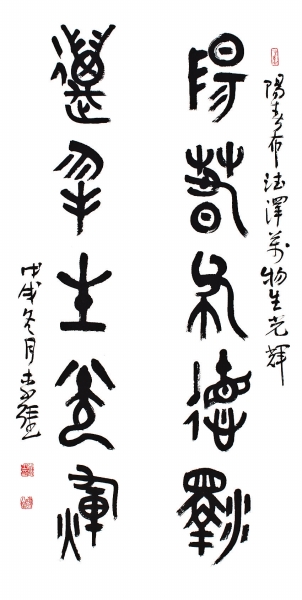 陽春布德澤萬物生光輝
陽春布德澤
萬物生光輝
戊戌冬月